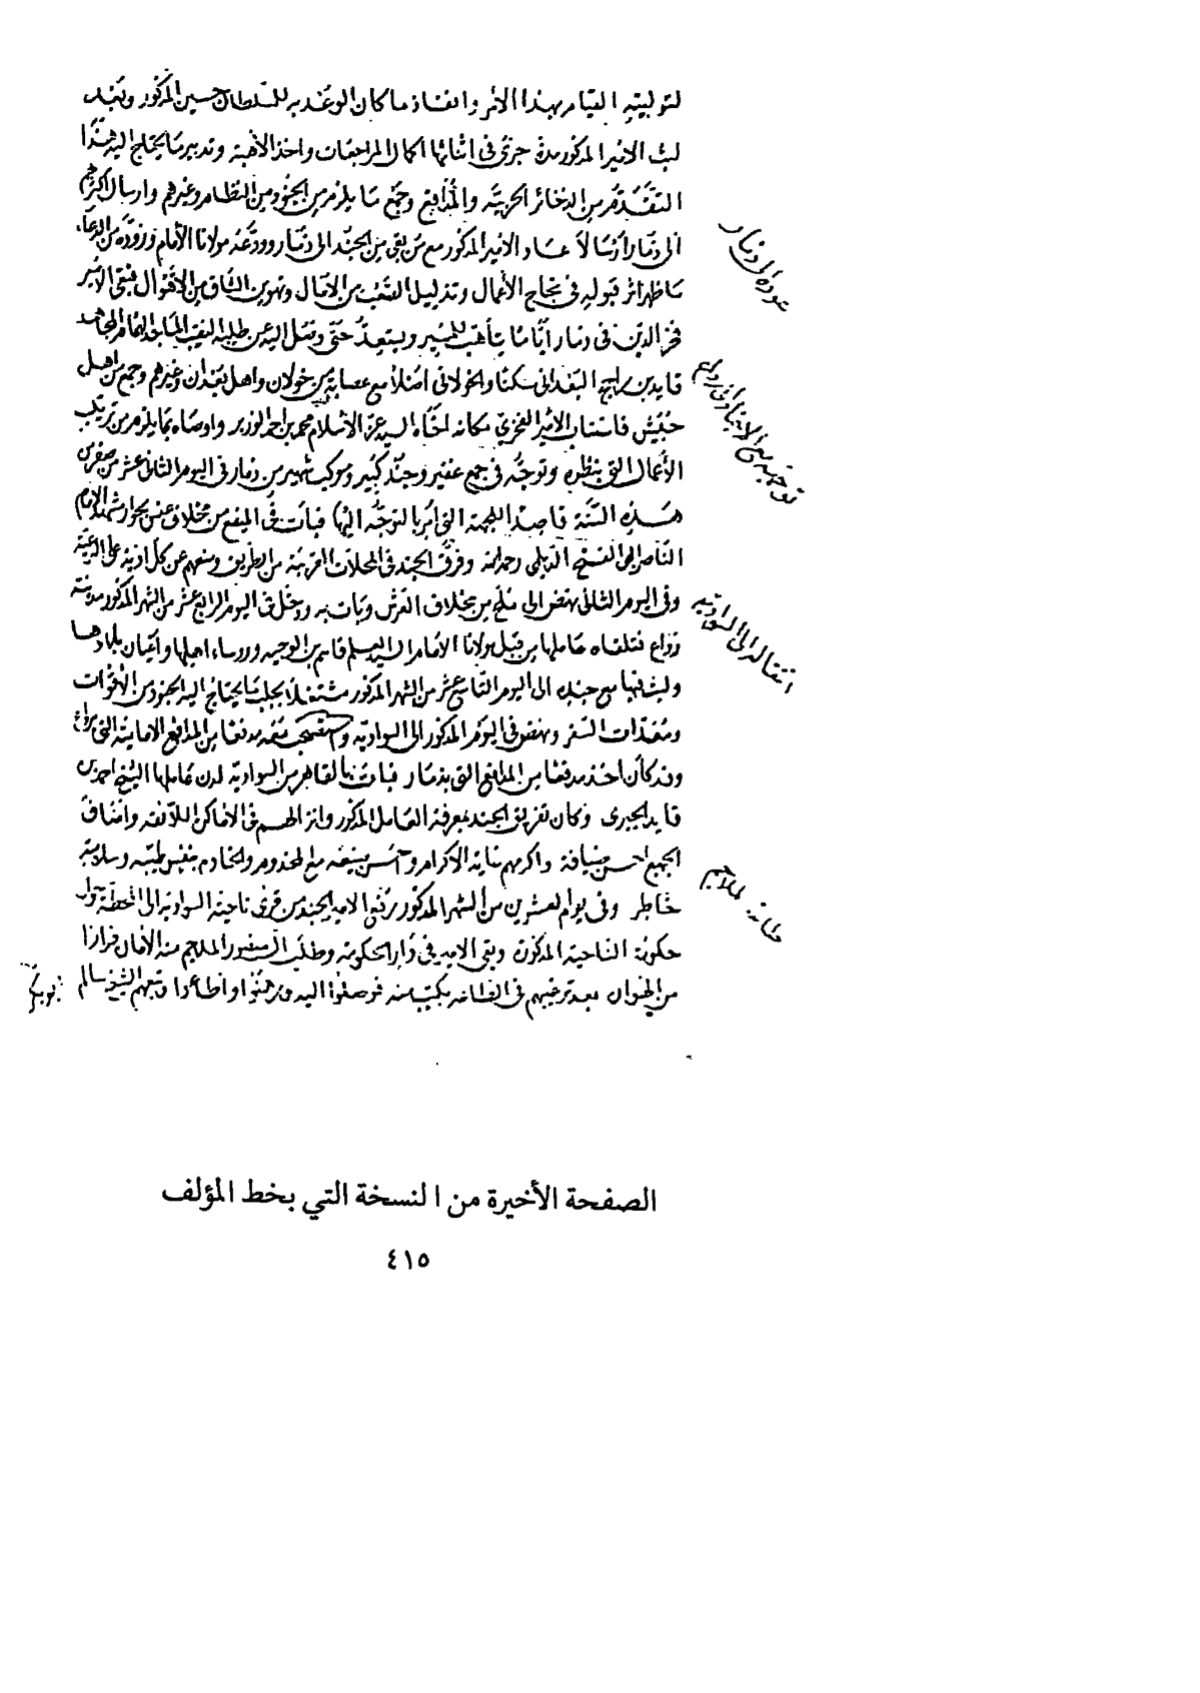 لتوليته القيام بهذا الأمر وانفاذ ما كان الوعد به للسلطان حسين المذكور وبعد
لبث الامير المذكور مدة جرى في اثنائها اكمال المراجعات واخذ الأهبة وتدبير ما يحتاج اليه هذا
التقدم من الذخائر الحربية والمدافع وجمع ما يلزم من الجنود من النظام وغيرهم وارسال اكثرهم
الى ذمار أرسالا عاد الامير المذكور مع من بقي من الجند الى ذمار وودعه مولانا الأمام وزوده من الدعاء
ما ظهر اثر قبوله في نجاح الأعمال وتذليل الصعب من الآمال وتهوين الشاق من الأهوال فبقي الأمير
فخر الدين في ذمار أيامًا يتأهب للمسير ويستعد حتى وصل اليه عن طلبه النقيب الماجد الهمام المجاهد
قايد بن راجح البعداني سكنا والخولاني اصلا مع عصابة من خولان واهل بعدان وغيرهم وجمع من اهل
حبيش فاستناب الأمير الفخري مكانه اخاه السيد عز الاسلام محمد بن احمد الوزير واوصاه بما يلزم من ترتيب
الأعمال التي بنظره وتوجه في جمع غفير وجند كبير وموكب شهير من ذمار في اليوم الثاني عشر من صفر من
هذه السنة قاصدا للجهة التي أمر بالتوجه اليها فبات في الميفع من مخلاف عنس بجوار مشهد الامام
الناصر ابي الفتح الديلمي رحمه الله وفرق الجند في المحلات القريبة من الطريق ومنعهم عن كل اذية على الرعية
وفي اليوم الثاني نهض الى ملح من مخلاف العرش وبات به ودخل في اليوم الرابع عشر من الشهر المذكور مدينة
رداع فتلقاه عاملها من قبل مولانا الامام السيد العلم قاسم بن الوجيه ورؤساء اهلها واعيان بلادها
ولبث فيها مع جنده الى اليوم التاسع عشر من الشهر المذكور مشتغلا بجلب ما يحتاج اليه الجنود من الأقوات
ومعدات السفر ونهض في اليوم المذكور الى السوادية واستصحب معه مدفعا من المدافع الامامية التي برداع
وقد كان اخذ مدفعا من المدافع التي بذمار فبات بالقاهر من السوادية لدى عاملها الشيخ احمد بن
قايد الجبري وكان تفريق الجند بمعرفة العامل المذكور وانزالهم في الاماكن اللائقه واضاف
الجميع احسن ضيافة واكرمهم غاية الاكرام واحسن صنعه مع المخدوم والخادم بنفس طيبه وسلامة
خاطر وفي يوم العشرين من الشهر المذكور رفع الامير الجند من قرى ناحية السوادية الى المحطة حول
حكومة الناحية المذكورة وبقي الامير في دار الحكومة وطلب السفور الملاجم منه الأمان فرارا
من الهوان بعد ترغيبهم في الطاعه بكتب منه فوصلوا اليه ورهنوا واطاعوا وتبعهم الشيخ سالم
بوبكر
عوده الى ذمار
توجهه مع الاجناد الى رداع
انتقاله الى السوادية
طاعة الملاجم
الصفحة الأخيرة من النسخة التي بخط المؤلف
٤١٥